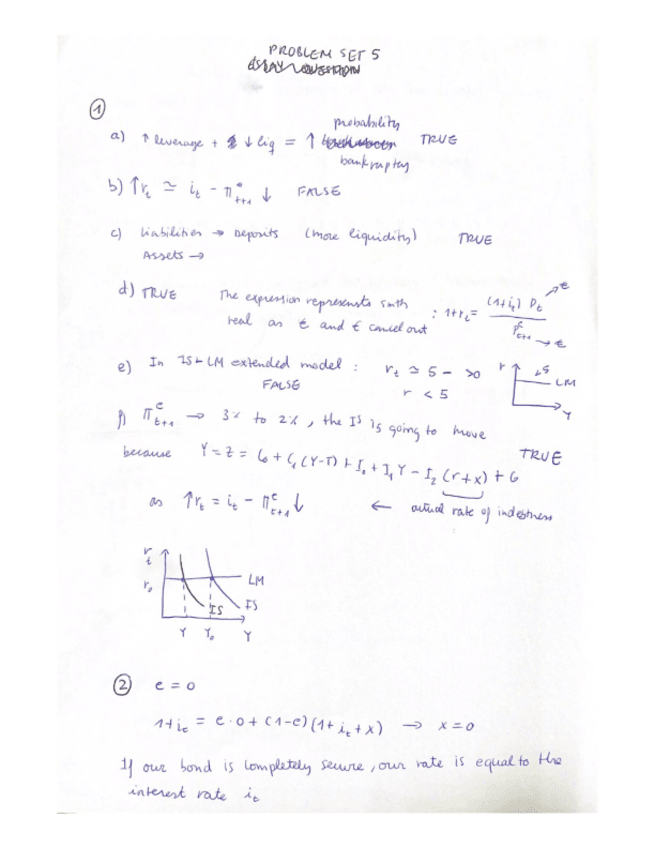 PROBLEM SET 5
ESSAY QUESTION
①
probability
a) ↑ leverage + ↓ liq = ↑ TRUE
bankruptcy
b) ↑r_t ≃ i_t - π^e_{t+1} ↓ FALSE
c) Liabilities → Deposits (more liquidity) TRUE
Assets →
d) TRUE The expression represensts smth : 1+r_t = (1+i_t) P_t / P^e_{t+1} → € → €
real as € and € cancel out
e) In IS-LM extended model : r_t ≃ 5 - >0
FALSE r < 5
r LM Y
f) π^e_{t+1} → 3% to 2%, the IS is going to move
because Y = Z = C_0 + C_1 (Y-T) + I_0 + I_1 Y - I_2 (r+x) + G TRUE
as ↑r_t = i_t - π^e_{t+1} ↓ ← actual rate of indebtness
r_t
r_0 LM
IS IS
Y Y_0 Y
② e = 0
1+i_t = e·0 + (1-e)(1+i_t+x) → x = 0
If our bond is completely secure, our rate is equal to the
interest rate i_t